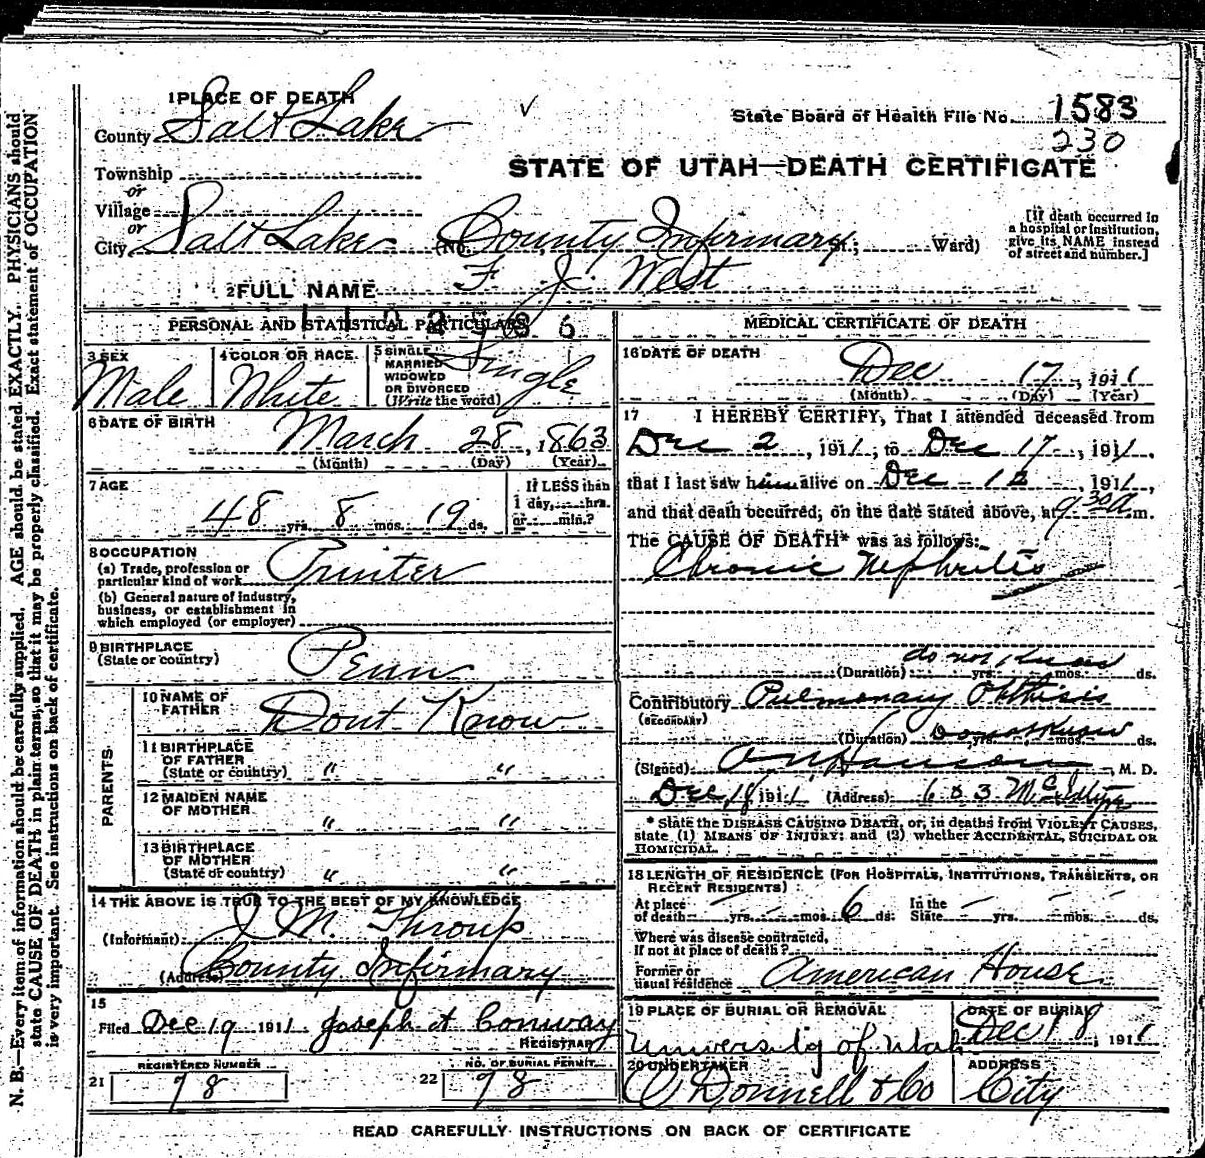 1 PLACE OF DEATH
County Salt Lake
State Board of Health File No. 1583
230
Township
or
Village
or
City Salt Lake (No. County Infirmary St; Ward)
STATE OF UTAH—DEATH CERTIFICATE
[If death occurred in
a hospital or institution,
give its NAME instead
of street and number.]
2 FULL NAME F. J. West
PERSONAL AND STATISTICAL PARTICULARS
3 SEX
Male
4 COLOR OR RACE.
White
5 SINGLE,
MARRIED
WIDOWED
OR DIVORCED
(Write the word)
Single
6 DATE OF BIRTH
March 28, 1863
(Month) (Day) (Year)
7 AGE
48 yrs. 8 mos. 19 ds.
If LESS than
1 day, hrs.
or min.?
8 OCCUPATION
(a) Trade, profession or
particular kind of work Printer
(b) General nature of industry,
business, or establishment in
which employed (or employer)
9 BIRTHPLACE
(State or country) Penn
PARENTS
10 NAME OF
FATHER Dont Know
11 BIRTHPLACE
OF FATHER
(State or country) " "
12 MAIDEN NAME
OF MOTHER " "
13 BIRTHPLACE
OF MOTHER
(State or country) " "
14 THE ABOVE IS TRUE TO THE BEST OF MY KNOWLEDGE
(Informant) J. M. Throup
(Address) County Infirmary
15
Filed Dec 19 1911 Joseph A Conway
REGISTRAR
REGISTERED NUMBER
21 78
NO. OF BURIAL PERMIT
22 98
MEDICAL CERTIFICATE OF DEATH
16 DATE OF DEATH
Dec 17, 1911
(Month) (Day) (Year)
17 I HEREBY CERTIFY, That I attended deceased from
Dec 2, 1911, to Dec 17, 1911,
that I last saw him alive on Dec 12, 1911,
and that death occurred, on the date stated above, at 9 30 a.m.
The CAUSE OF DEATH* was as follows:
Chronic Nephritis
do not know
(Duration) yrs. mos. ds.
Contributory Pulmonary Phthisis
(SECONDARY)
(Duration) Do not Know yrs. mos. ds.
(Signed) Hanson, M. D.
Dec 18 1911 (Address) 603 McIntyre
* State the DISEASE CAUSING DEATH, or, in deaths from VIOLENT CAUSES,
state (1) MEANS OF INJURY; and (2) whether ACCIDENTAL, SUICIDAL OR
HOMICIDAL.
18 LENGTH OF RESIDENCE (FOR HOSPITALS, INSTITUTIONS, TRANSIENTS, OR
RECENT RESIDENTS) :
At place
of death yrs. mos. 6 ds. In the
State yrs. mos. ds.
Where was disease contracted,
If not at place of death?
Former or
usual residence American House
19 PLACE OF BURIAL OR REMOVAL
University of Utah
DATE OF BURIAL
Dec 18, 1911
20 UNDERTAKER
O Donnell & Co
ADDRESS
City
READ CAREFULLY INSTRUCTIONS ON BACK OF CERTIFICATE
N. B.—Every item of information should be carefully supplied. AGE should be stated EXACTLY. PHYSICIANS should
state CAUSE OF DEATH in plain terms, so that it may be properly classified. Exact statement of OCCUPATION
is very important. See instructions on back of certificate.